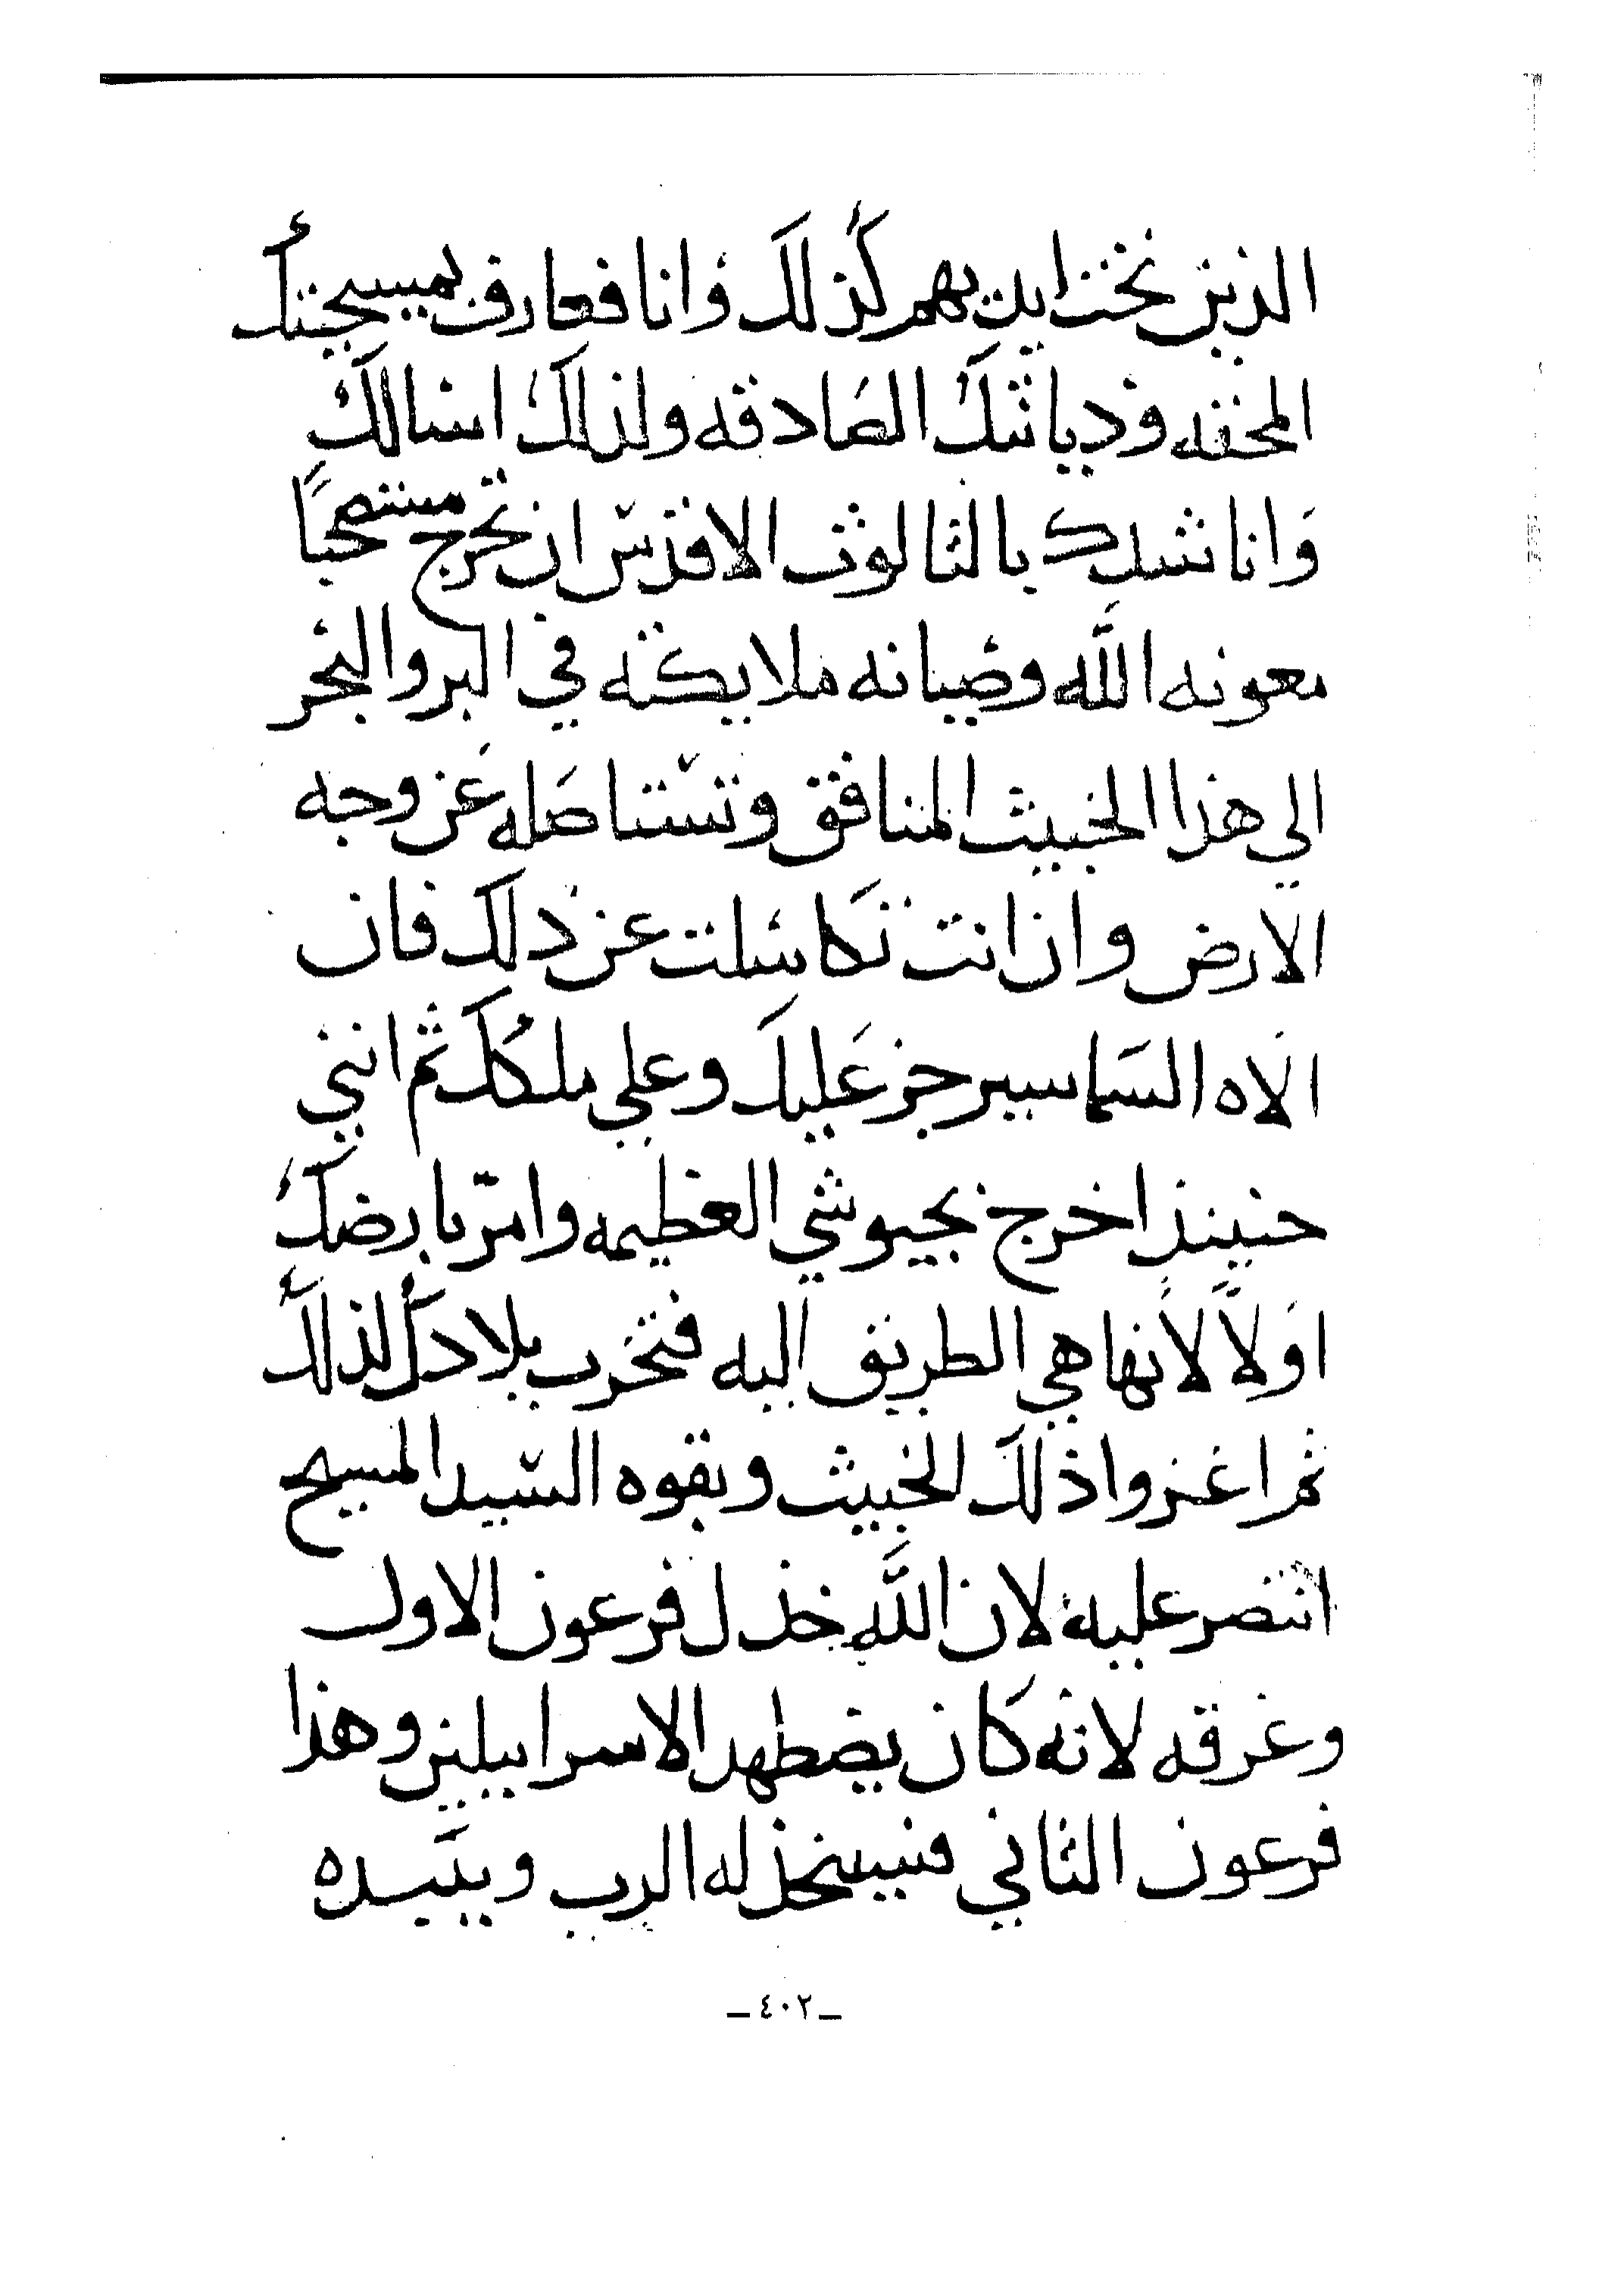 الذين تحت ايديهم كذلك وانا فعارف بمسيحيتك
المحققه وديانتك الصادقه ولذلك اسالك
وانا شدك بالثالوث الاقدس ان تخرج مستصحبًا
معونه الله وصيانه ملايكته في البر والبحر
الي هذا الخبيث المنافق وتستاصله عن وجه
الارض وان انت تكاسلت عن ذلك فان
الاه السما سيرجز عليك وعلي ملكك ثم انني
حنيند اخرج بجيوشي العظيمه وامرّ بارضك
اولاً لانها هي الطريق اليه فتخرب بلادك لذلك
ثم اغزوا ذلك الخبيث وبقوه السّيد المسيح
انتصر عليه لان الله خذل فرعون الاول
وغرقه لانه كان يضطهد الاسراييلين وهذا
فرعون الثاني فسيخذله الرب ويبيده
ـ ٤٠٢ ـ